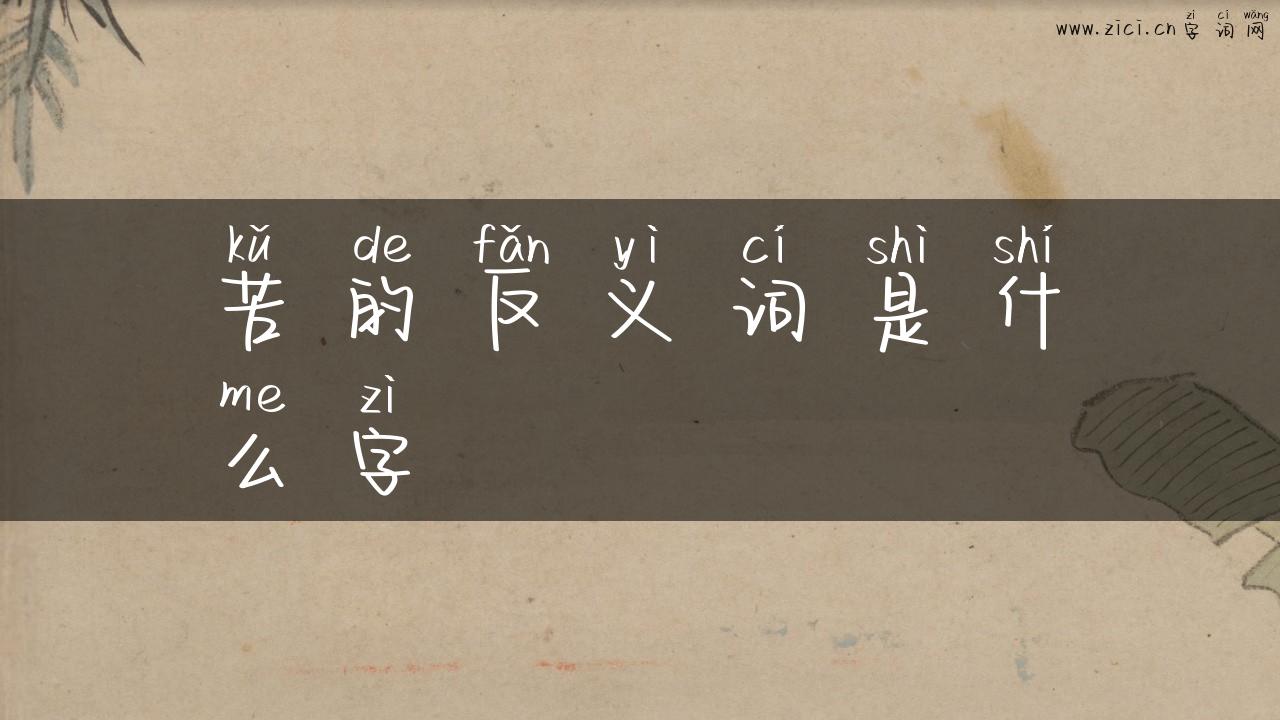 zì cí wǎng
www.zici.cn 字词网
kǔ de fǎn yì cí shì shí
苦的反义词是什
me zì
么字